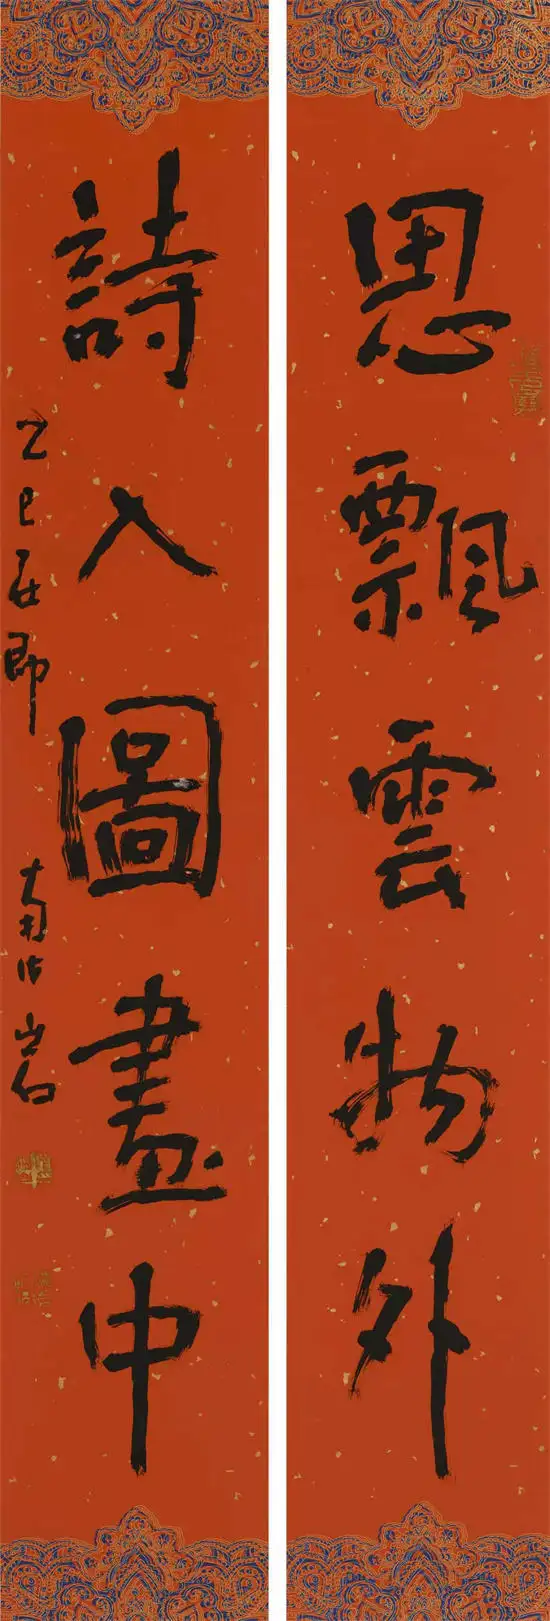 思飄雲物外
詩入圖畫中
乙巳
即
南